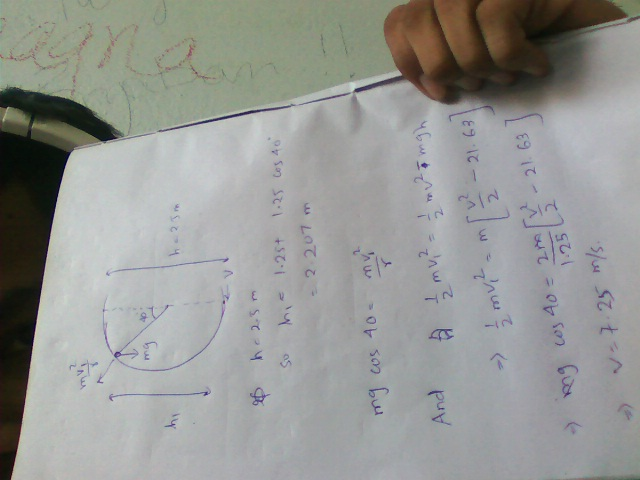 agna
h = 2.5 m
40°
v
mg
mv₁²/r
h₁
h = 2.5 m
So h₁ = 1.25 + 1.25 cos 40°
= 2.207 m
mg cos 40 = mv₁²/r
And ½ mv₁² = ½ mv² - mgh
⇒ ½ mv₁² = m [v²/2 - 21.63]
⇒ mg cos 40 = 2m/1.25 [v²/2 - 21.63]
⇒ v = 7.25 m/s.